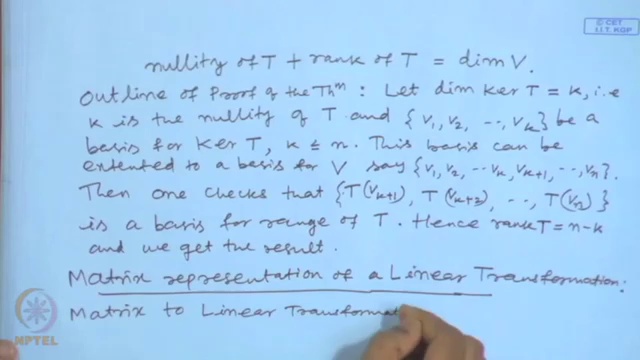 © CET
I.I.T. KGP
nullity of T + rank of T = dim V.
Outline of Proof of the Thm : Let dim Ker T = k, i.e
k is the nullity of T and {v1, v2, .., vk} be a
basis for Ker T, k ≤ n. This basis can be
extented to a basis for V say {v1, v2, .. vk, vk+1, .., vn}.
Then one checks that {T(vk+1), T(vk+2), .., T(vn)}
is a basis for range of T. Hence rank T = n-k
and we get the result.
Matrix representation of a Linear Transformation:
Matrix to Linear Transformat
NPTEL